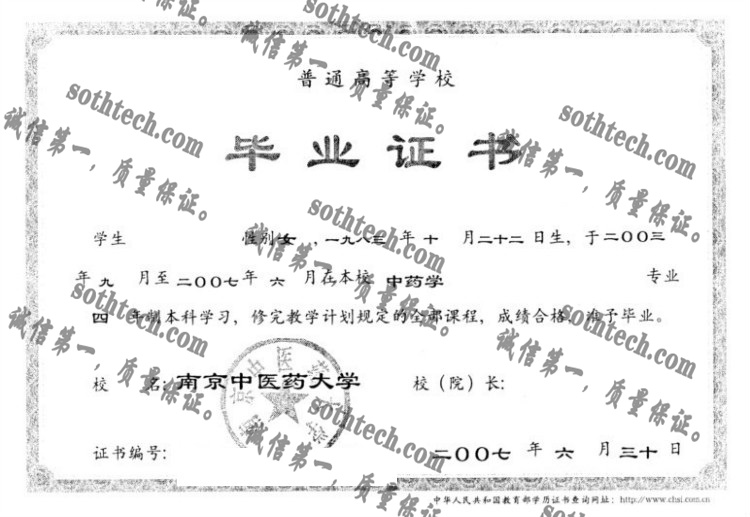 普通高等学校
毕业证书
学生 性别 女 ,一九八三 年 十 月二十二日生，于二〇〇三
年 九 月至二〇〇七年 六 月在本校 中药学 专业
四 年制本科学习，修完教学计划规定的全部课程，成绩合格，准予毕业。
校 名: 南京中医药大学 校（院）长:
证书编号: 二〇〇七 年 六 月 三十日
中华人民共和国教育部学历证书查询网址: http://www.chsi.com.cn
sothtech.com
诚信第一，质量保证。
sothtech.com
诚信第一，质量保证。
sothtech.com
诚信第一，质量保证。
sothtech.com
诚信第一，质量保证。
sothtech.com
诚信第一，质量保证。
sothtech.com
诚信第一，质量保证。
sothtech.com
诚信第一，质量保证。